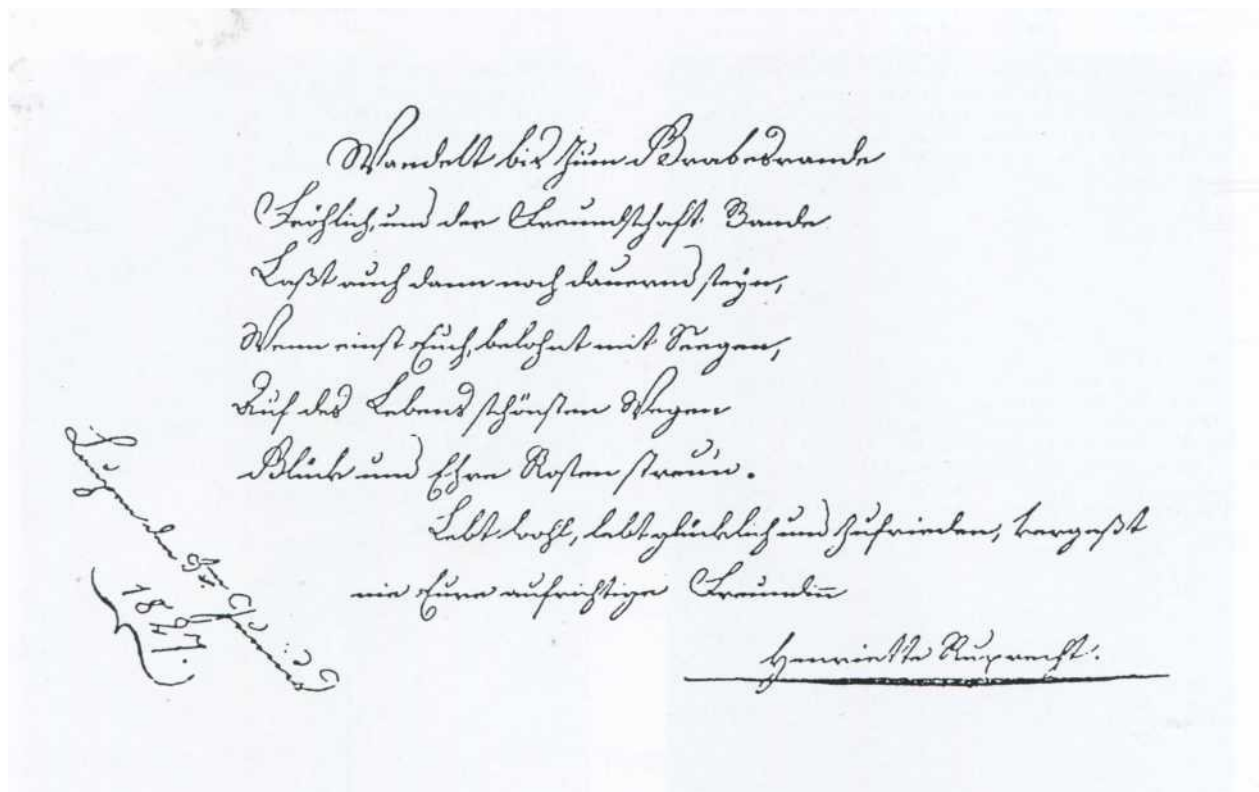 Wandelt bis zum Grabesrande
Fröhlich, und der Freundschaft Bande
Laßt auch dann noch dauernd seyn,
Wenn einst Euch, belohnt mit Seegen,
Auf des Lebens schönsten Wegen
Glück und Ehre Rosen streun.
Lebt wohl, lebt glücklich und zufrieden, vergeßt
nie Eure aufrichtige Freundinn
Henriette Ruprecht.
den
1827.